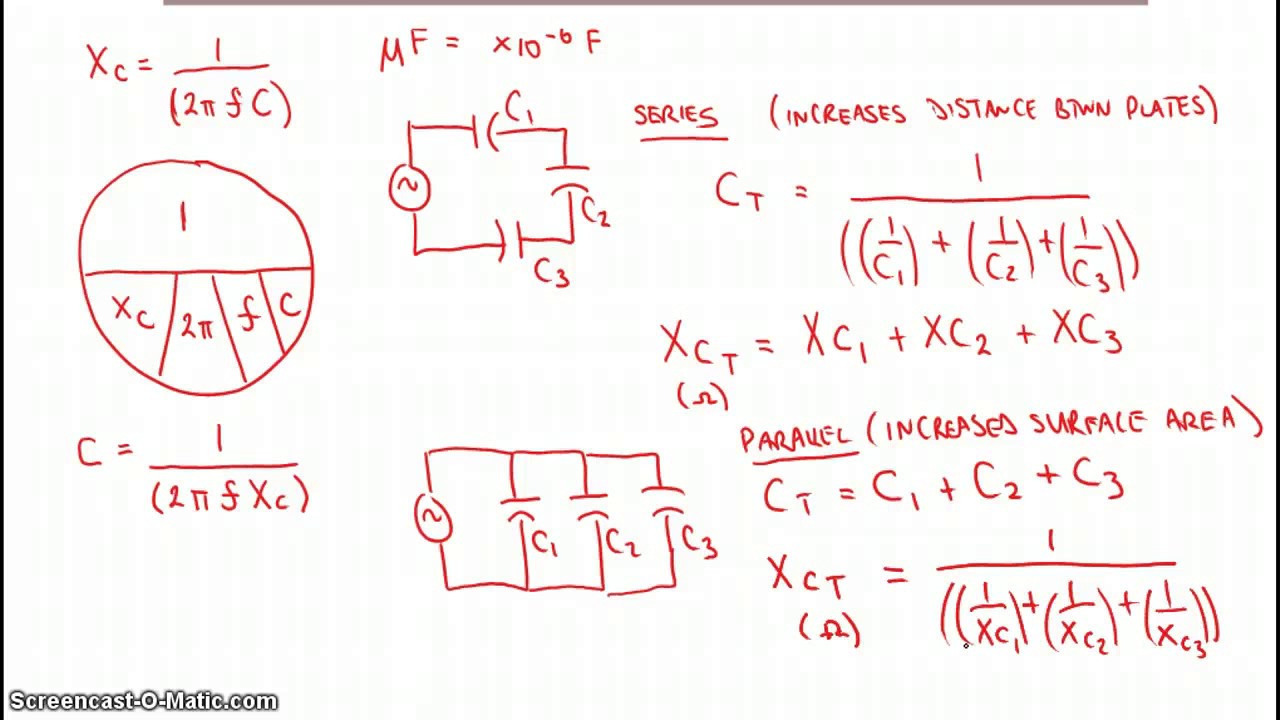 X_C = 1 / (2π f C)
μF = ×10⁻⁶ F
1
X_C 2π f C
C = 1 / (2π f X_C)
C₁
C₂
C₃
SERIES (INCREASES DISTANCE BTWN PLATES)
C_T = 1 / ((1/C₁) + (1/C₂) + (1/C₃))
X_C_T = XC₁ + XC₂ + XC₃
(Ω)
C₁ C₂ C₃
PARALLEL (INCREASED SURFACE AREA)
C_T = C₁ + C₂ + C₃
X_CT = 1 / ((1/XC₁) + (1/X_C₂) + (1/X_C₃))
(Ω)
Screencast-O-Matic.com